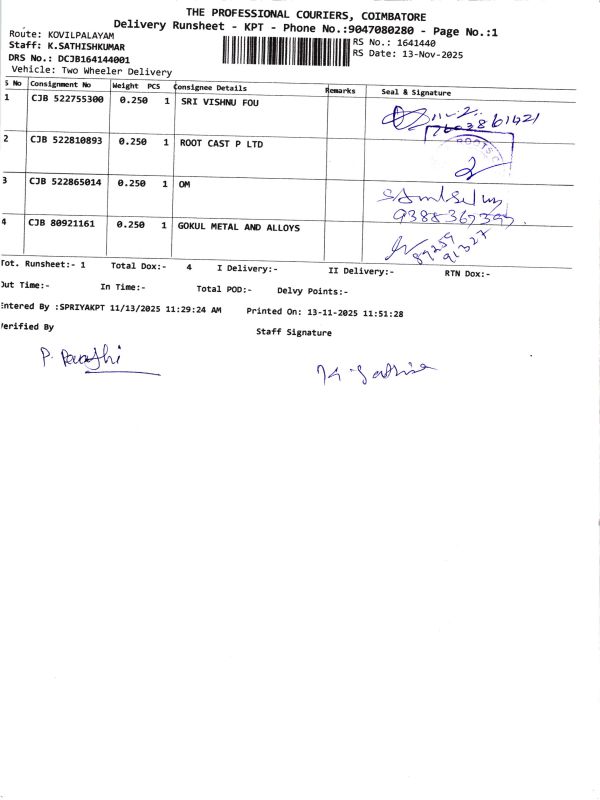 THE PROFESSIONAL COURIERS, COIMBATORE
Delivery Runsheet - KPT - Phone No.:9047080280 - Page No.:1
Route: KOVILPALAYAM
Staff: K.SATHISHKUMAR
RS No.: 1641440
DRS No.: DCJB164144001
RS Date: 13-Nov-2025
Vehicle: Two Wheeler Delivery
S No Consignment No Weight PCS Consignee Details Remarks Seal & Signature
1 CJB 522755300 0.250 1 SRI VISHNU FOU
2 CJB 522810893 0.250 1 ROOT CAST P LTD
ROOTS C
3 CJB 522865014 0.250 1 OM
9388367397
4 CJB 80921161 0.250 1 GOKUL METAL AND ALLOYS
89259
91327
Tot. Runsheet:- 1 Total Dox:- 4 I Delivery:- II Delivery:- RTN Dox:-
Out Time:- In Time:- Total POD:- Delvy Points:-
Entered By :SPRIYAKPT 11/13/2025 11:29:24 AM Printed On: 13-11-2025 11:51:28
Verified By Staff Signature